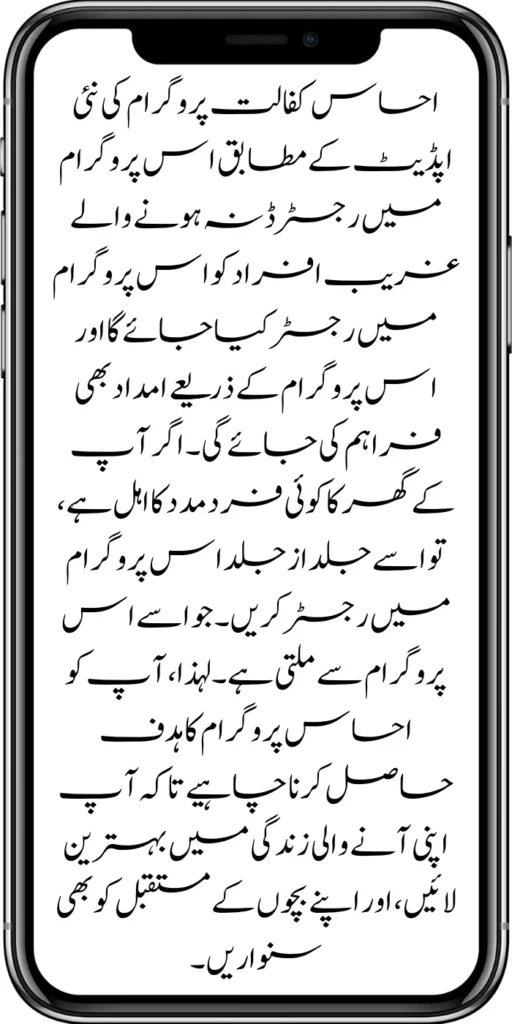 احساس کفالت پروگرام کی نئی
اپڈیٹ کے مطابق اس پروگرام
میں رجسٹرڈ نہ ہونے والے
غریب افراد کو اس پروگرام
میں رجسٹر کیا جائے گا اور
اس پروگرام کے ذریعے امداد بھی
فراہم کی جائے گی۔ اگر آپ
کے گھر کا کوئی فرد مدد کا اہل ہے،
تو اسے جلد از جلد اس پروگرام
میں رجسٹر کریں۔ جو اسے اس
پروگرام سے ملتی ہے۔ لہذا، آپ کو
احساس پروگرام کا ہدف
حاصل کرنا چاہیے تاکہ آپ
اپنی آنے والی زندگی میں بہترین
لائیں، اور اپنے بچوں کے مستقبل کو بھی
سنواریں۔